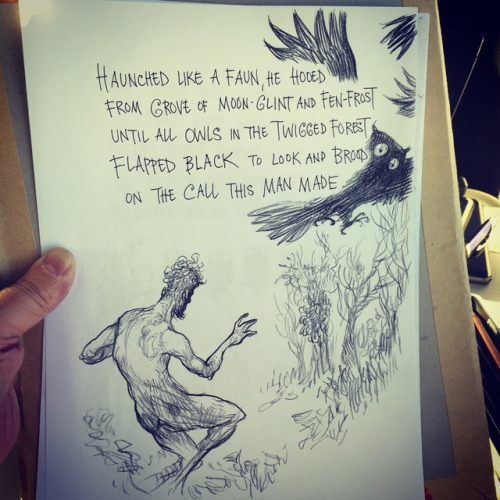 HAUNCHED LIKE A FAUN, HE HOOED
FROM GROVE OF MOON-GLINT AND FEN-FROST
UNTIL ALL OWLS IN THE TWIGGED FOREST
FLAPPED BLACK TO LOOK AND BROOD
ON THE CALL THIS MAN MADE